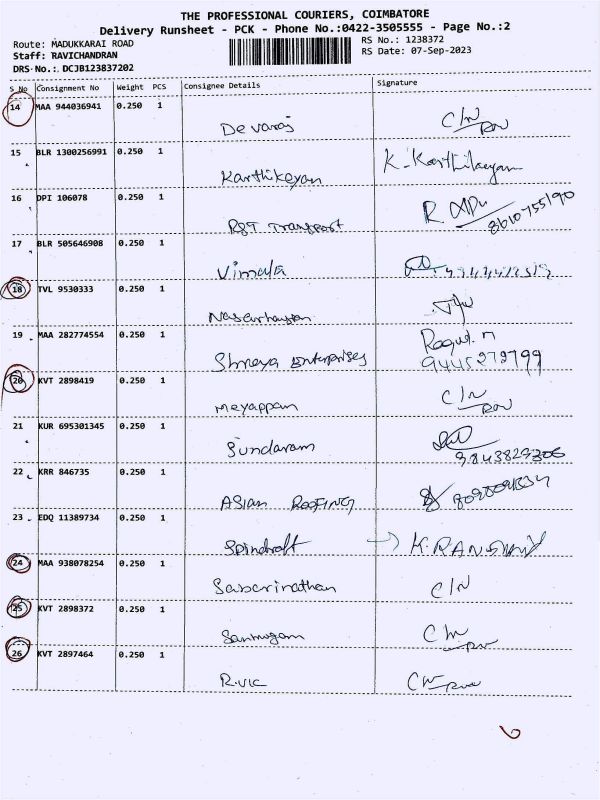 THE PROFESSIONAL COURIERS, COIMBATORE
Delivery Runsheet - PCK - Phone No.:0422-3505555 - Page No.:2
Route: MADUKKARAI ROAD
RS No.: 1238372
Staff: RAVICHANDRAN
RS Date: 07-Sep-2023
DRS No.: DCJB123837202
S No Consignment No Weight PCS Consignee Details Signature
14 MAA 944036941 0.250 1
Devaraj C/N
15 BLR 1300256991 0.250 1
Karthikeyan K. Karthikeyan
16 DPI 106078 0.250 1
RST Transport 8610755190
17 BLR 505646908 0.250 1
Vimala
18 TVL 9530333 0.250 1
19 MAA 282774554 0.250 1
Shreya Enterprises 9445272799
20 KVT 2898419 0.250 1
Meyappan C/N
21 KUR 695301345 0.250 1
Sundaram
22 KRR 846735 0.250 1
ASIAN ROOFING
23 EDQ 11389734 0.250 1
Spindraft
24 MAA 938078254 0.250 1
Sabarinathan C/N
25 KVT 2898372 0.250 1
Sanmugam C/N
26 KVT 2897464 0.250 1
C/N
6